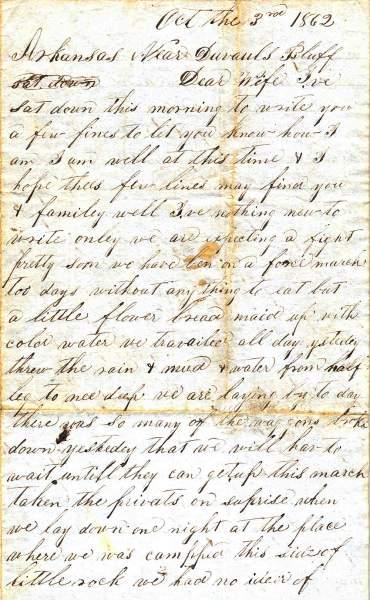 Oct the 3rd 1862
Arkansas Near Duvauls Bluff
sat down Dear Wife I've
sat down this morning to write you
a few fines to let you know how I
am I am well at this time & I
hope thees few lines may find you
& familey well I've nothing new to
write onley we are expecting a fight
pretty soon we have ben on a force march
too days without any thing to eat but
a little flower bread maid up with
color water we travailed all day yesterdey
threw the rain & mud & water from half
leg to nee deep we are laying by to day
there was so many of the waggons broke
down yesterdey that we will have to
wait untill they can getup this march
taken the privats on suprise when
we lay down one night at the place
where we was campped this side of
little rock we had no idear of